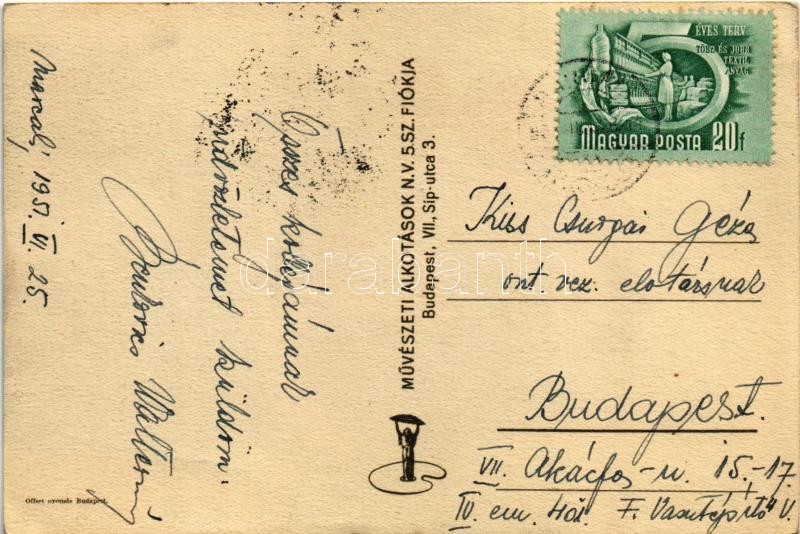 Marcali, 1951. VI. 25.
Összes kollégámnak
üdvözletemet küldöm.
Offset nyomda Budapest.
MŰVÉSZETI ALKOTÁSOK N.V. 5.SZ. FIÓKJA
Budapest, VII., Síp-utca 3.
5 ÉVES TERV
TÖBB ÉS JOBB
TEXTIL
ANYAG
MAGYAR POSTA 20f
Kiss Csurgai Géza
önt. vez. előtársnak
Budapest.
VII. Akácfa-u. 15.-17.
IV. em. 401. F. Vasútépítő V.
darabanth